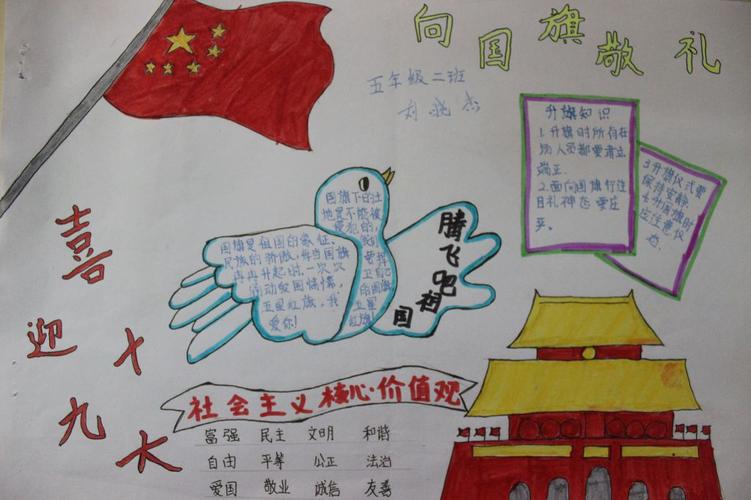 向国旗敬礼
五年级二班
刘晓杰
升旗知识
1.升旗时所有在
场人员都要肃立
端正.
2.面向国旗行注
目礼神态要庄
严。
3升旗仪式要
保持安静
4升国旗时
应注意仪
国旗下的土
地是不能被
侵犯的,
国旗是祖国的象征,
民族的骄傲,每当国旗
冉冉升起时,一次次
五星红旗,我
爱你!
五星
红旗!
腾飞吧祖国
喜迎十九大
社会主义核心·价值观
富强 民主 文明 和谐
自由 平等 公正 法治
爱国 敬业 诚信 友善